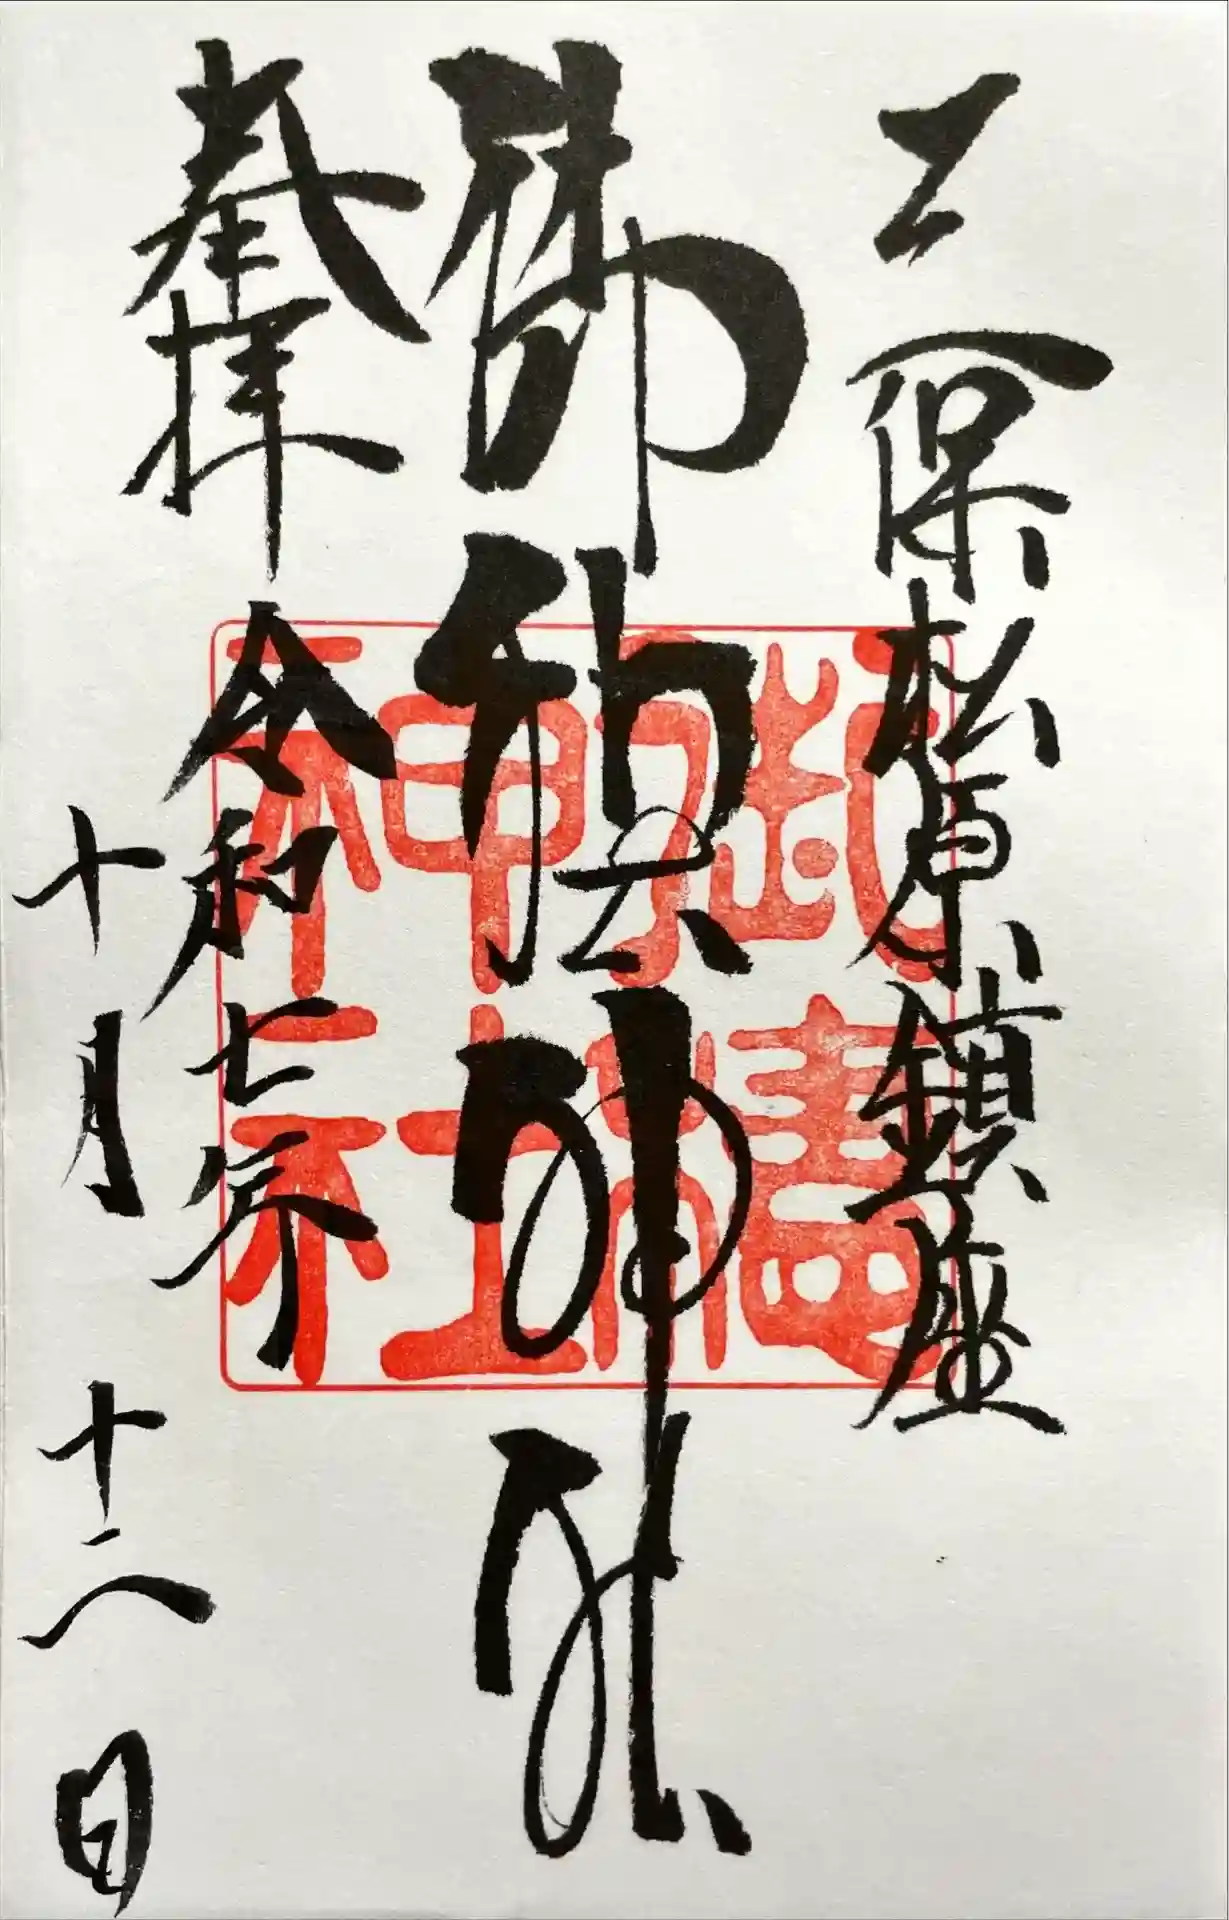 三保松原鎮座
御穂神社
奉拝 令和七年
十月十八日
御穗神社